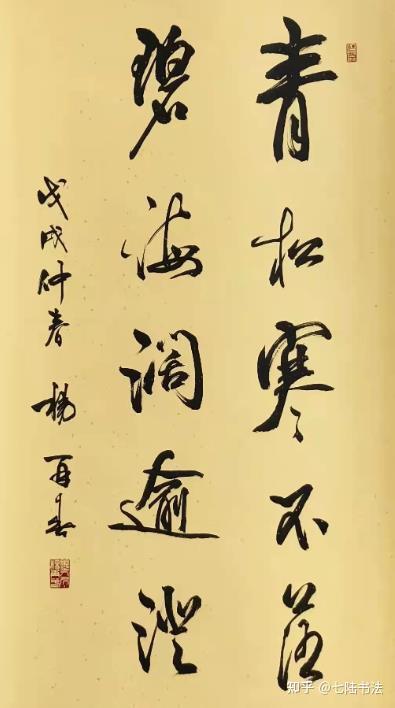 青松寒不落
碧海濶逾澄
戊戌仲春 楊再春
知乎 @七陆书法